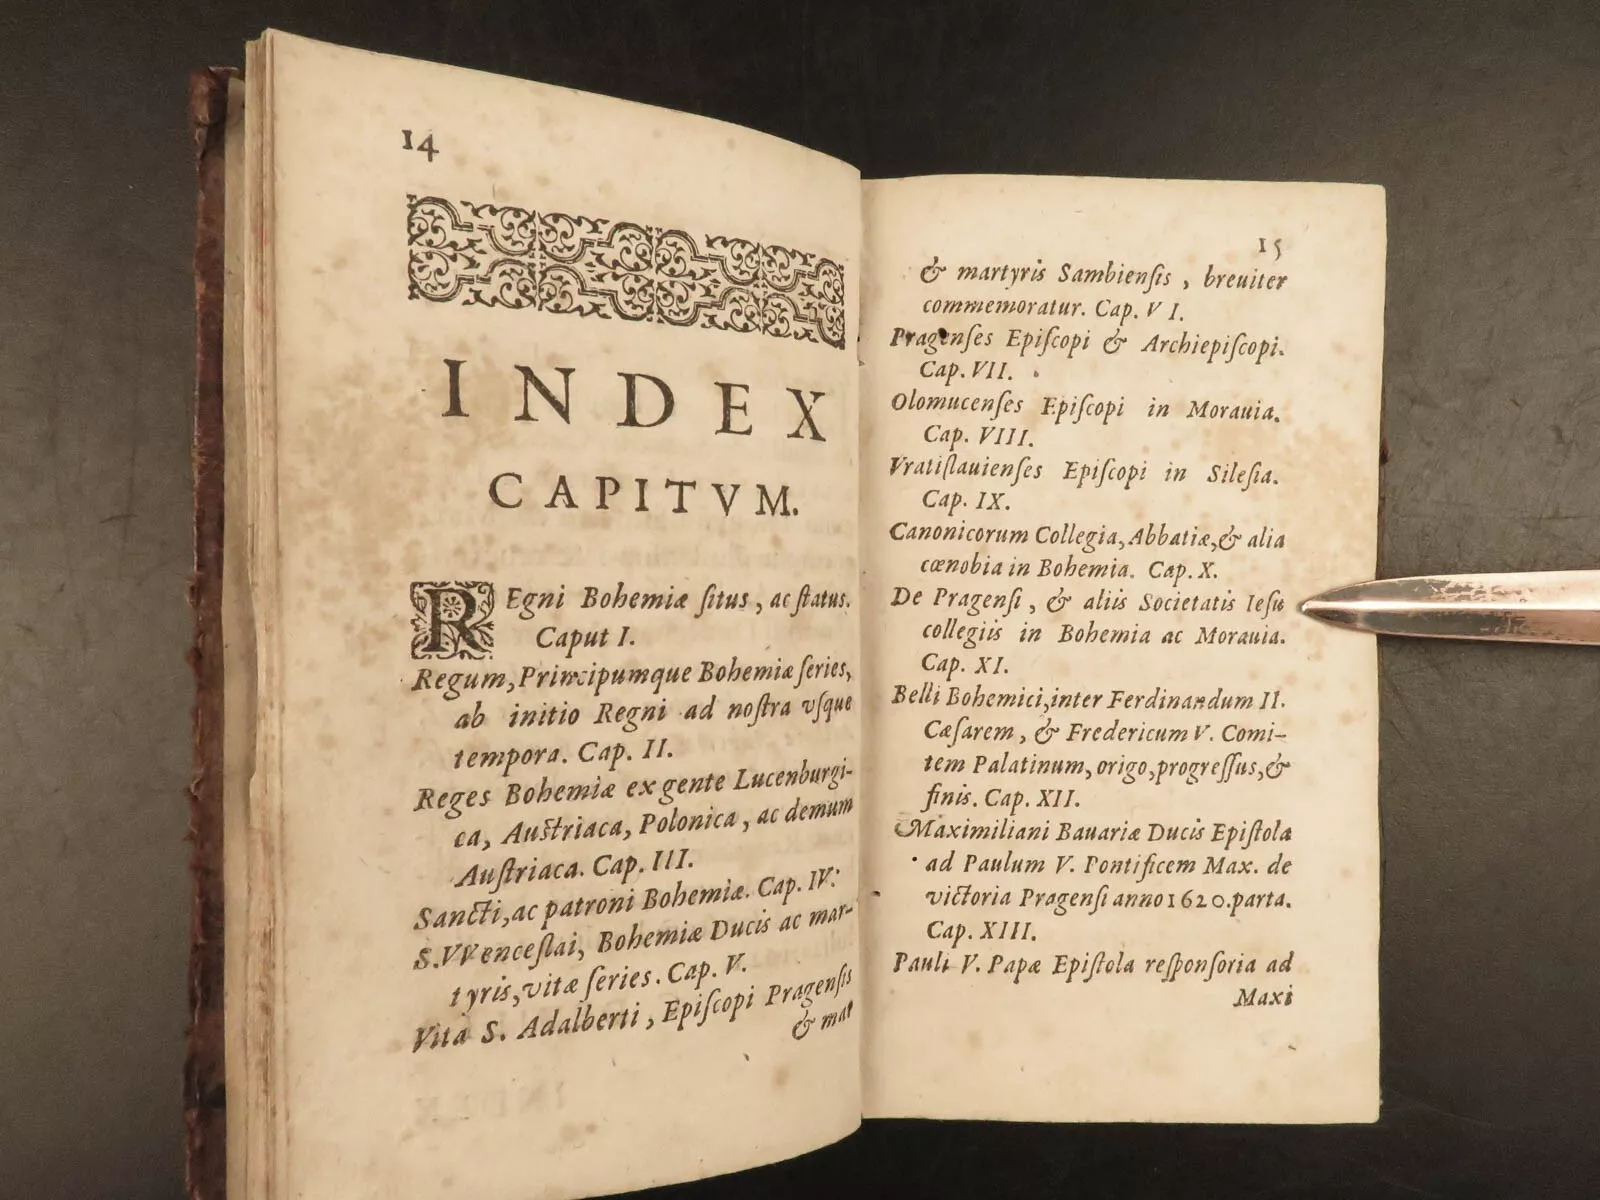 14
INDEX
CAPITVM.
REgni Bohemiæ ſitus, ac ſtatus.
Caput I.
Regum, Principumque Bohemiæ ſeries,
ab initio Regni ad noſtra vſque
tempora. Cap. II.
Reges Bohemiæ ex gente Lucenburgi-
ca, Auſtriaca, Polonica, ac demum
Auſtriaca. Cap. III.
Sancti, ac patroni Bohemiæ. Cap. IV.
S. VVenceſlai, Bohemiæ Ducis ac mar-
tyris, vitæ ſeries. Cap. V.
Vita S. Adalberti, Epiſcopi Pragenſis
& mar
15
& martyris Sambienſis, breuiter
commemoratur. Cap. VI.
Pragenſes Epiſcopi & Archiepiſcopi.
Cap. VII.
Olomucenſes Epiſcopi in Morauia.
Cap. VIII.
Vratiſlauienſes Epiſcopi in Sileſia.
Cap. IX.
Canonicorum Collegia, Abbatiæ, & alia
cœnobia in Bohemia. Cap. X.
De Pragenſi, & aliis Societatis Ieſu
collegiis in Bohemia ac Morauia.
Cap. XI.
Belli Bohemici, inter Ferdinandum II.
Cæſarem, & Fredericum V. Comi-
tem Palatinum, origo, progreſſus, &
finis. Cap. XII.
Maximiliani Bauariæ Ducis Epiſtola
ad Paulum V. Pontificem Max. de
victoria Pragenſi anno 1620. parta.
Cap. XIII.
Pauli V. Papæ Epiſtola reſponſoria ad
Maxi